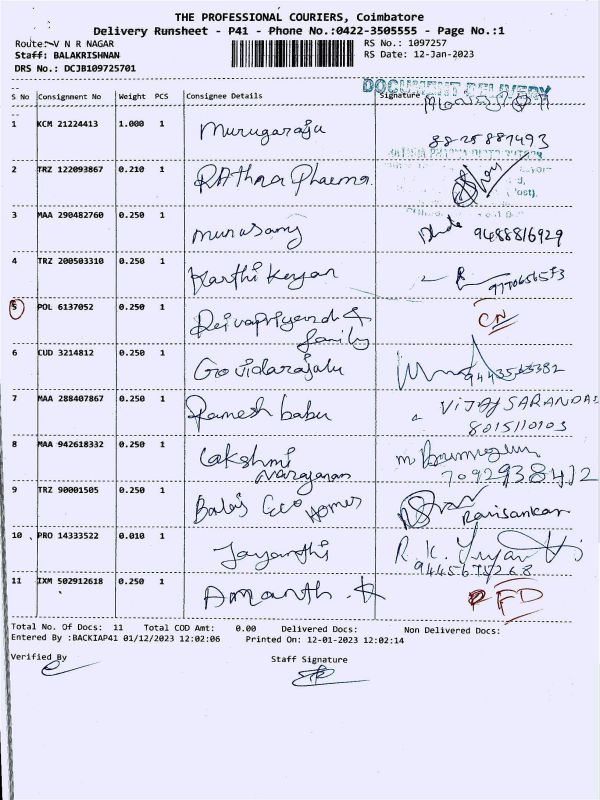 THE PROFESSIONAL COURIERS, Coimbatore
Delivery Runsheet - P41 - Phone No.:0422-3505555 - Page No.:1
Route: V N R NAGAR RS No.: 1097257
Staff: BALAKRISHNAN RS Date: 12-Jan-2023
DRS No.: DCJB109725701
DOCUMENT DELIVERY
S No Consignment No Weight PCS Consignee Details Signature
1 KCM 21224413 1.000 1 Murugaraju 88-25 887493
2 TRZ 122093867 0.210 1 RAthna Pharma
3 MAA 290482760 0.250 1 Munasamy 9488816929
4 TRZ 200503310 0.250 1 Karthikeyan
5 POL 6137052 0.250 1 & CN
family
6 CUD 3214812 0.250 1 Govidarajalu
7 MAA 288407867 0.250 1 Ramesh babu VIJAY SARANDAS
8015110103
8 MAA 942618332 0.250 1 Lakshmi
Narayanan 7092938412
9 TRZ 90001505 0.250 1 Balaji Eco Homes Ravisankar
10 PRO 14333522 0.010 1 Jayanthi R.K.
11 IXM 502912618 0.250 1 Amanth.R RFD
Total No. Of Docs: 11 Total COD Amt: 0.00 Delivered Docs: Non Delivered Docs:
Entered By :BACKIAP41 01/12/2023 12:02:06 Printed On: 12-01-2023 12:02:14
Verified By Staff Signature